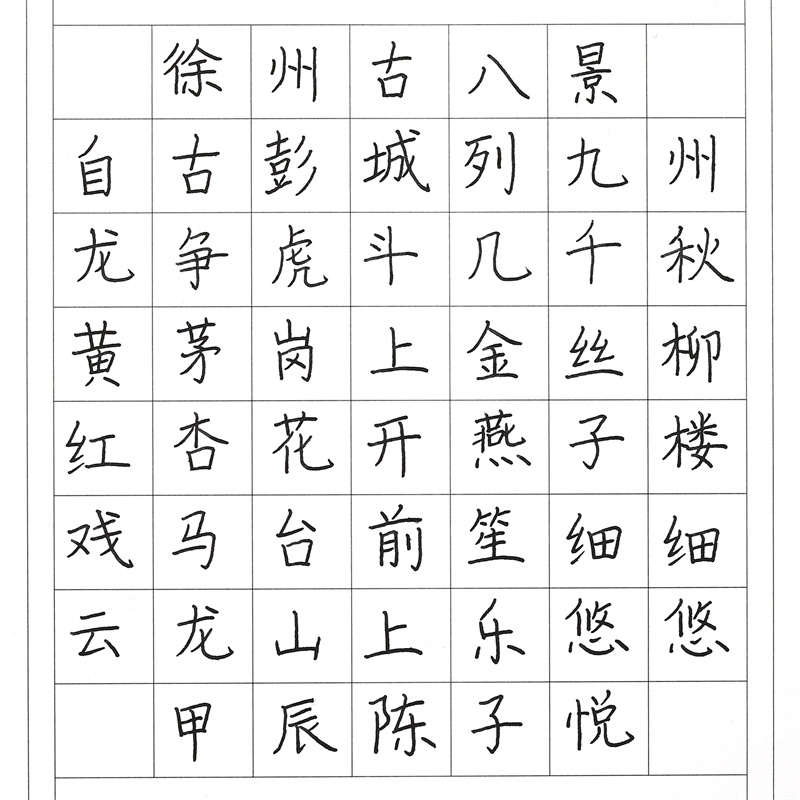 徐州古八景
自古彭城列九州
龙争虎斗几千秋
黄茅岗上金丝柳
红杏花开燕子楼
戏马台前笙细细
云龙山上乐悠悠
甲辰陈子悦